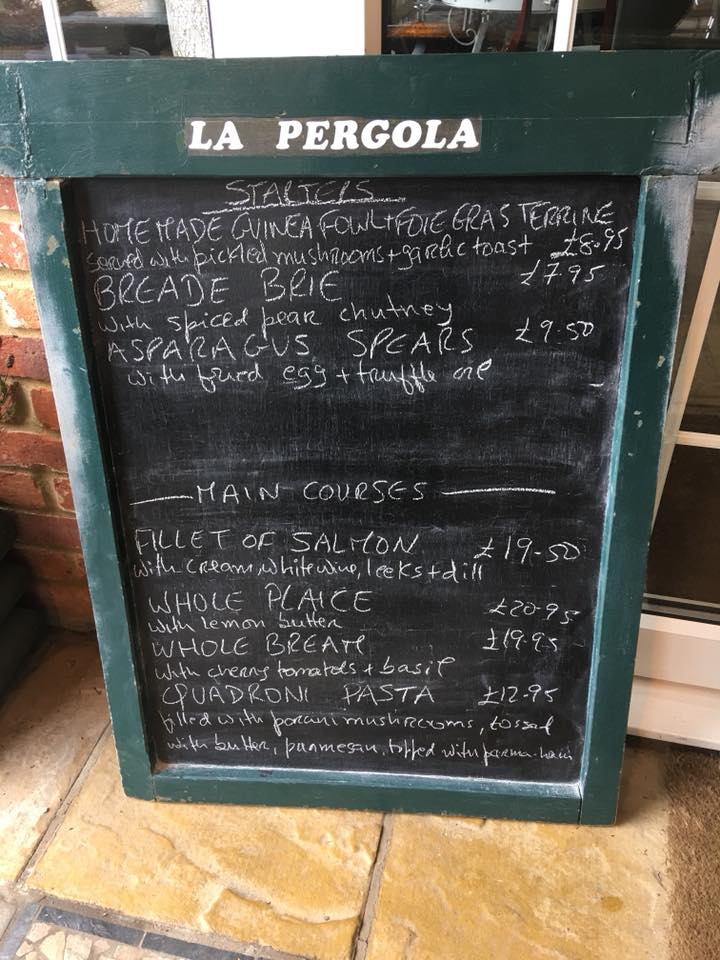 LA PERGOLA
STARTERS
HOMEMADE GUINEA FOWL + FOIE GRAS TERRINE
served with pickled mushrooms + garlic toast £8.95
BREADE BRIE £7.95
with spiced pear chutney
ASPARAGUS SPEARS £9.50
with fried egg + truffle oil
MAIN COURSES
FILLET OF SALMON £19.50
with cream, white wine, leeks + dill
WHOLE PLAICE £20.95
with lemon butter
WHOLE BREAM £19.95
with cherry tomatoes + basil
QUADRONI PASTA £12.95
filled with porcini mushrooms, tossed
with butter, parmesan, topped with parma-ham